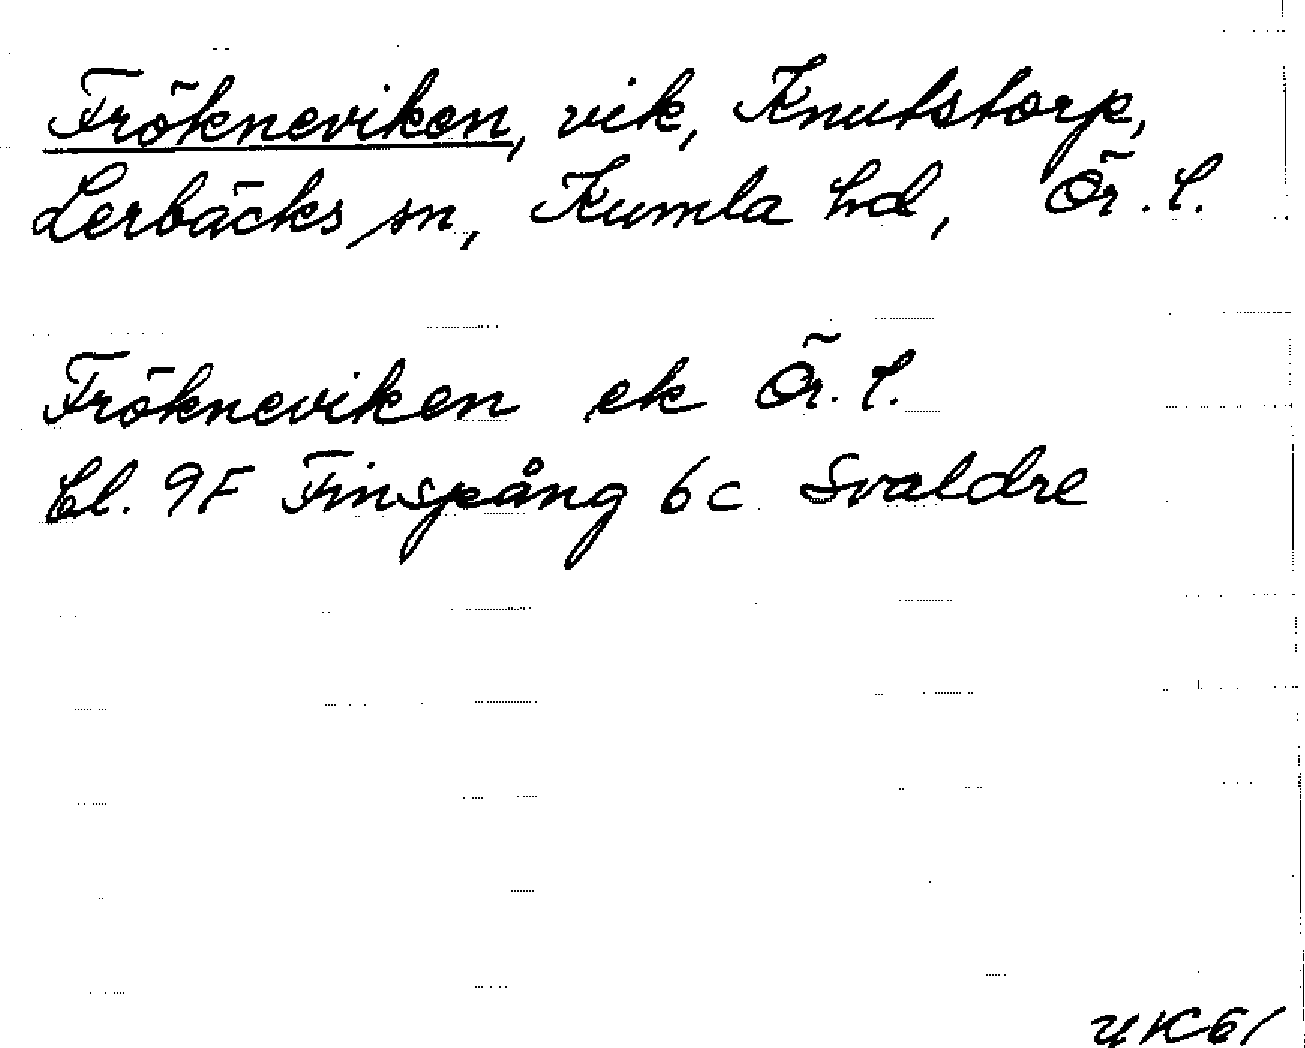 Frökneviken, vik, Knutstorp,
Lerbäcks sn, Kumla hd, Ör. l.
Frökneviken ek Ör. l.
bl. 9F Finspång 6c Svaldre
UK61